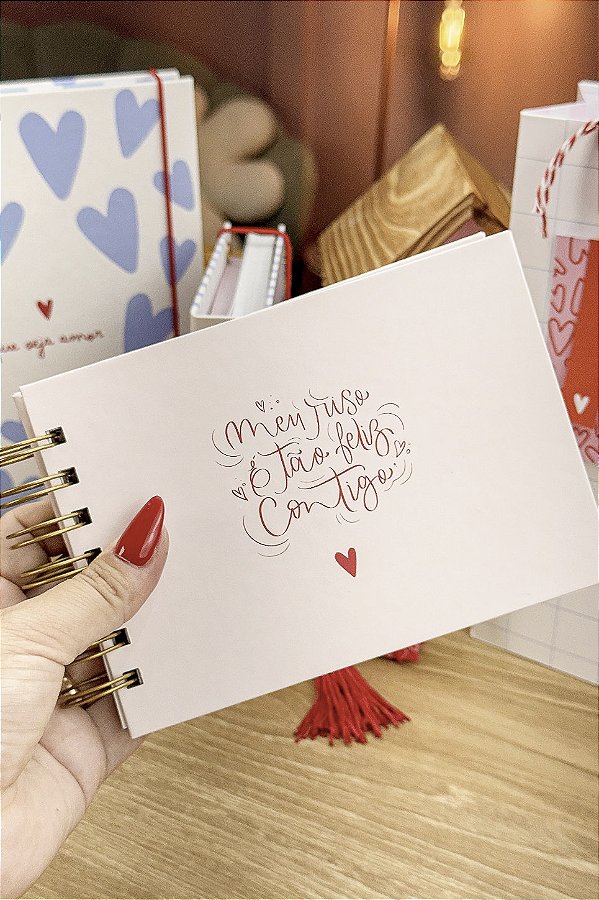 Meu riso
É tão feliz
Contigo
seja amor